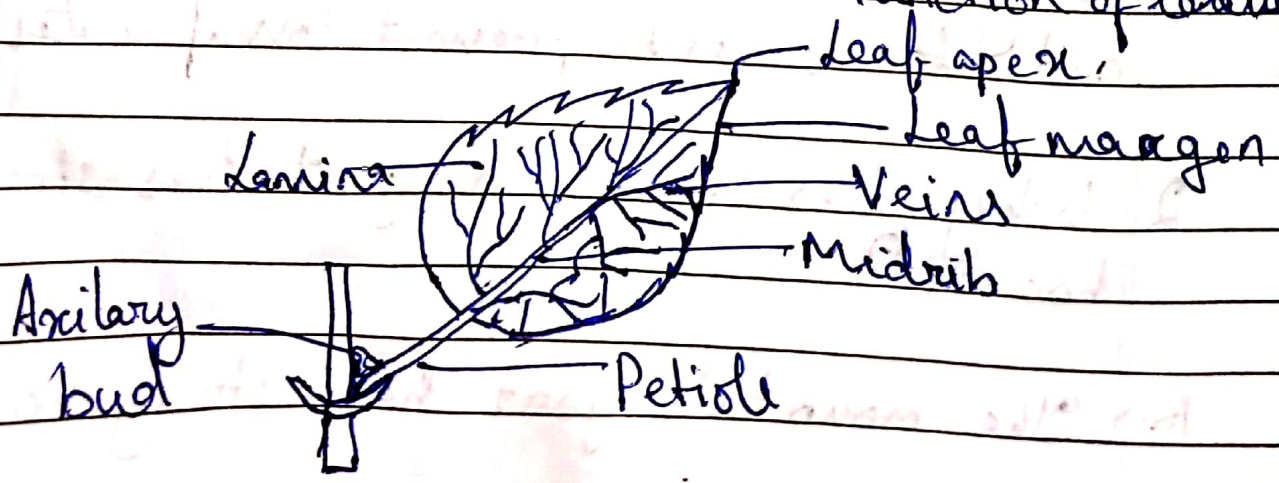 of
Leaf apex.
Leaf margen
Lamina
Veins
Midrib
Axilary
bud
Petiole